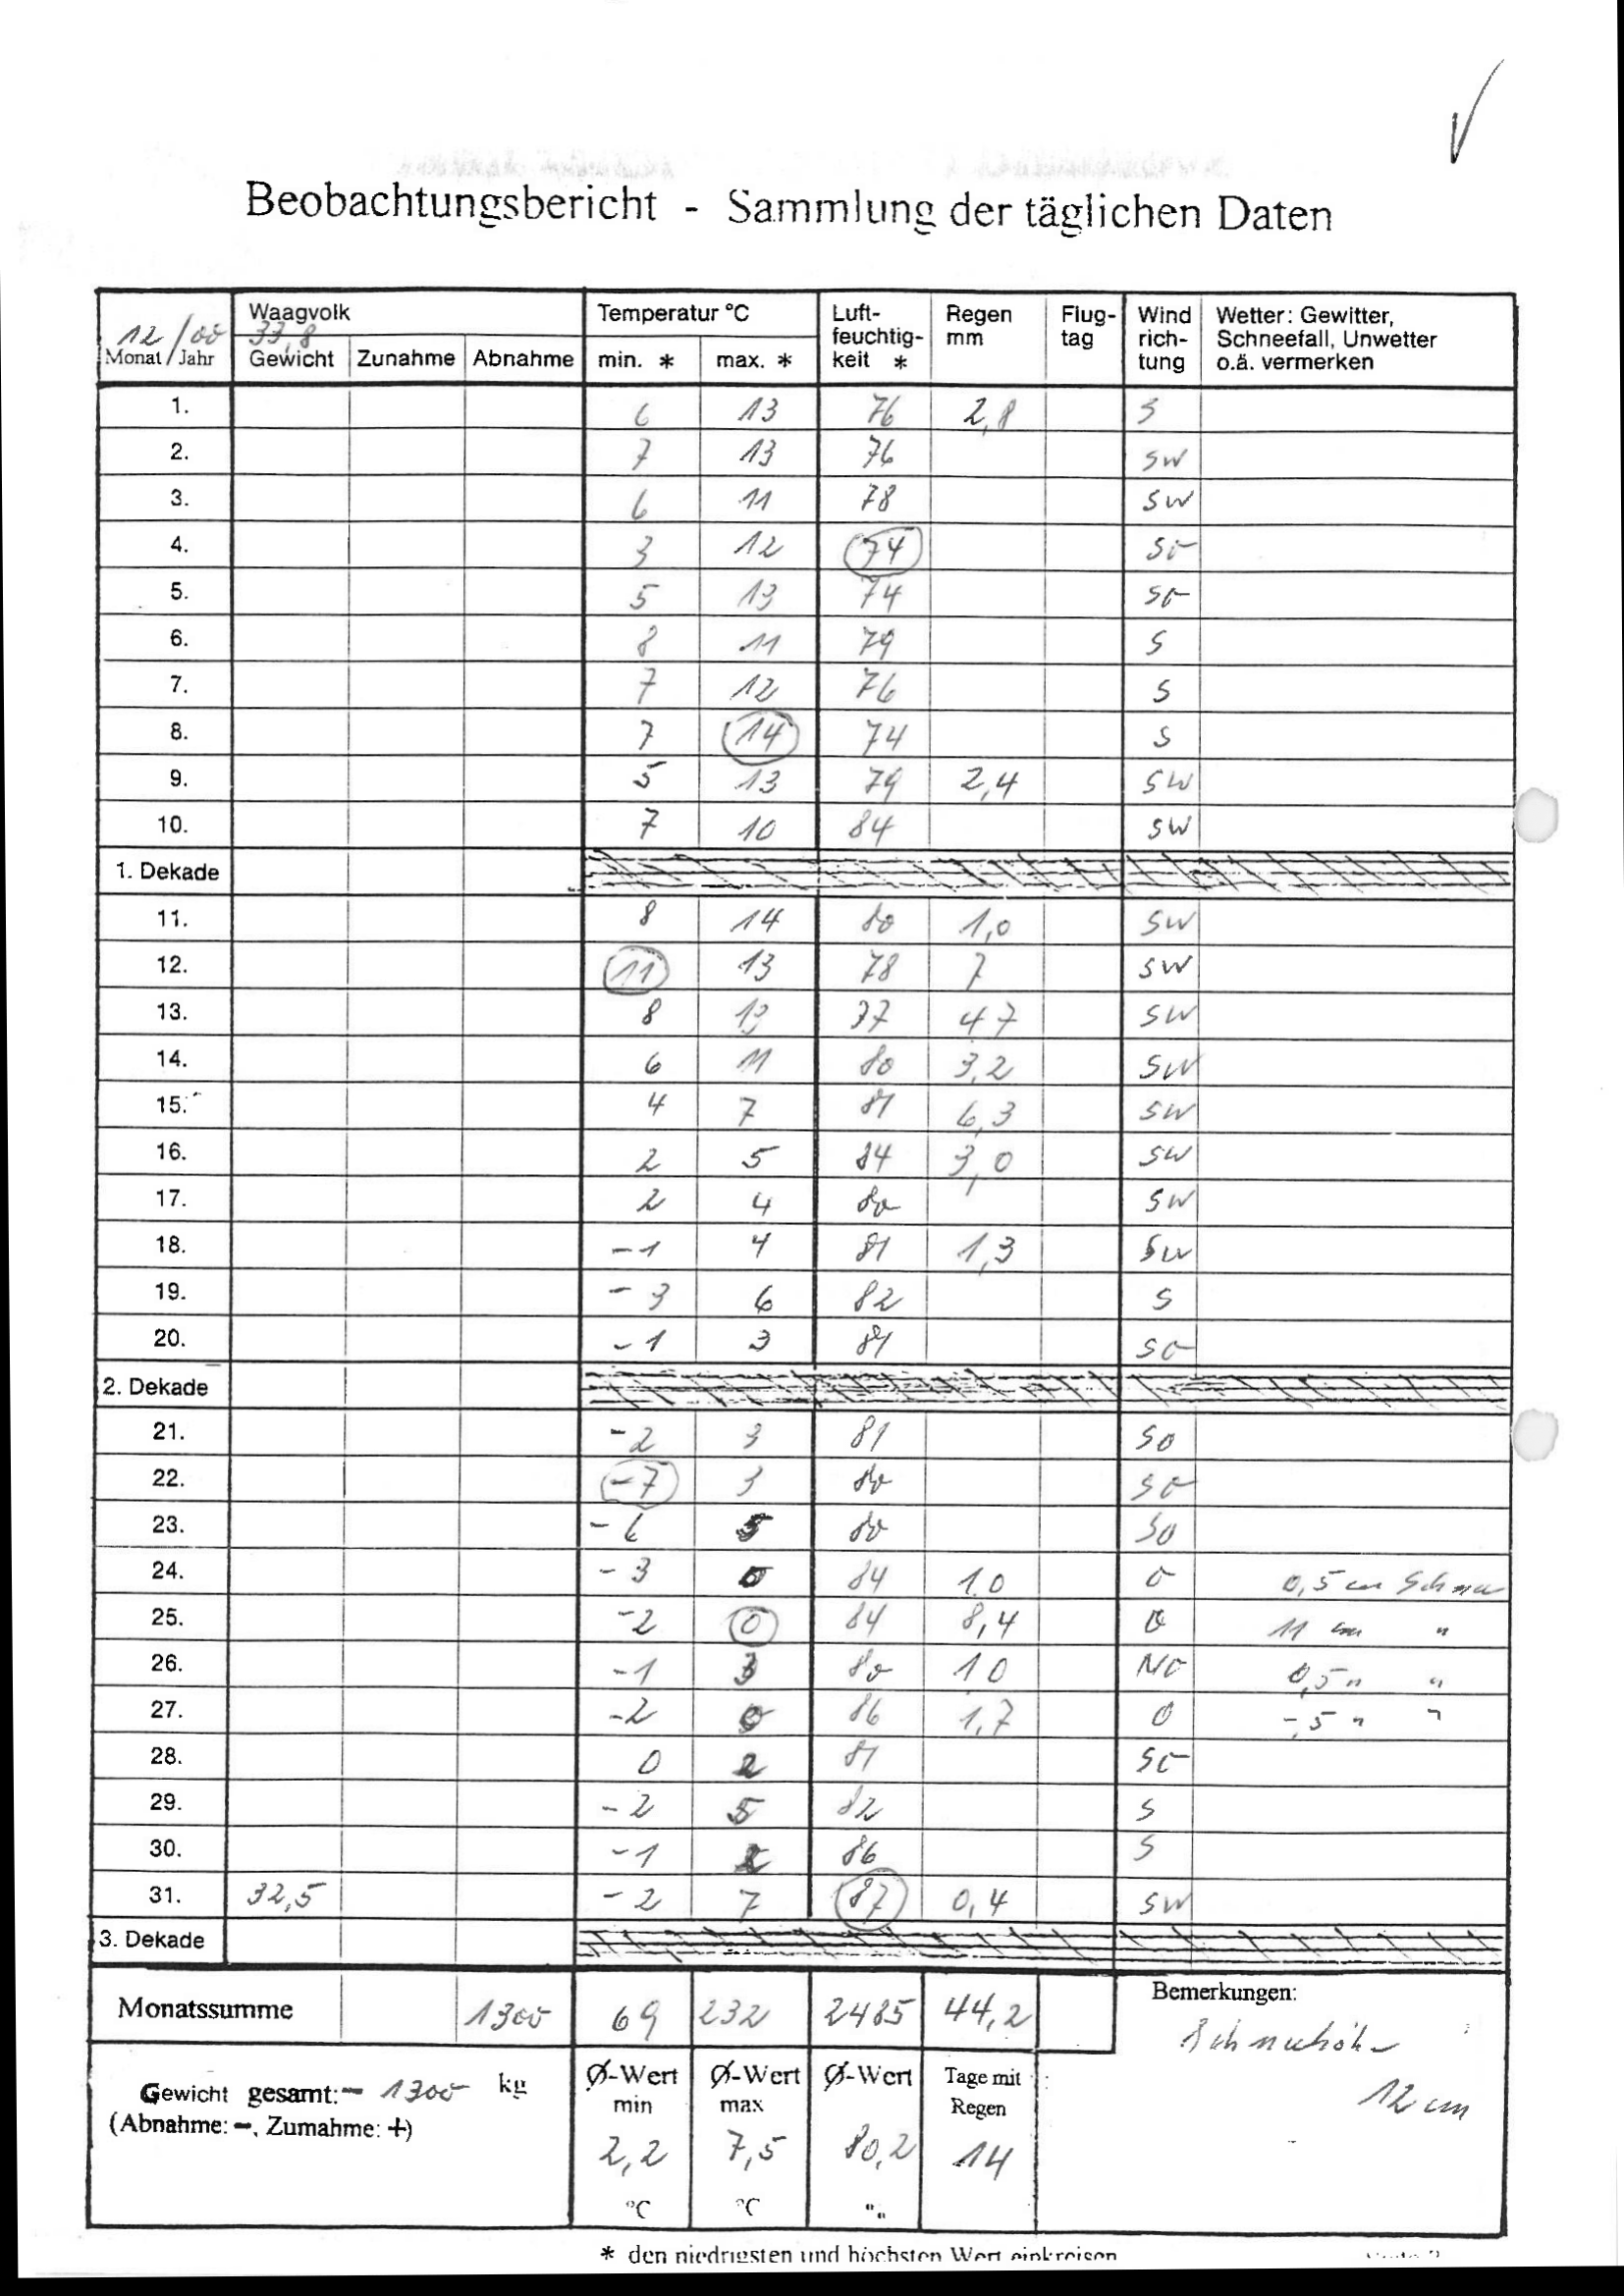 Beobachtungsbericht - Sammlung der täglichen Daten
12/00 Monat/Jahr Waagvolk 33,8 Gewicht Zunahme Abnahme Temperatur °C min. * max. * Luft-feuchtig-keit * Regen mm Flug-tag Wind rich-tung Wetter: Gewitter, Schneefall, Unwetter o.ä. vermerken
1. 6 13 76 2,8 S
2. 7 13 76 SW
3. 6 11 78 SW
4. 3 12 74 SO
5. 5 13 74 SO
6. 8 11 79 S
7. 7 12 76 S
8. 7 14 74 S
9. 5 13 79 2,4 SW
10. 7 10 84 SW
1. Dekade
11. 8 14 80 1,0 SW
12. 11 13 78 7 SW
13. 8 13 77 4 7 SW
14. 6 11 80 3,2 SW
15. 4 7 81 6,3 SW
16. 2 5 84 3,0 SW
17. 2 4 80 SW
18. -1 4 81 1,3 SW
19. -3 6 82 S
20. -1 3 81 SO
2. Dekade
21. -2 3 81 SO
22. -7 3 80 SO
23. -6 5 80 SO
24. -3 0 84 1.0 O 0,5 cm Schnee
25. -2 0 84 8,4 O 11 cm "
26. -1 3 80 1 0 NO 0,5 " "
27. -2 0 86 1,7 O -,5 " "
28. 0 2 81 SO
29. -2 5 82 S
30. -1 86 S
31. 32,5 -2 7 87 0,4 SW
3. Dekade
Monatssumme 1300 69 232 2485 44,2
Bemerkungen:
Schneehöhe
12 cm
Gewicht gesamt: - 1300 kg
(Abnahme: -, Zumahme: +)
Ø-Wert min 2,2 °C
Ø-Wert max 7,5 °C
Ø-Wert 80,2
Tage mit Regen 14
* den niedrigsten und höchsten Wert einkreisen